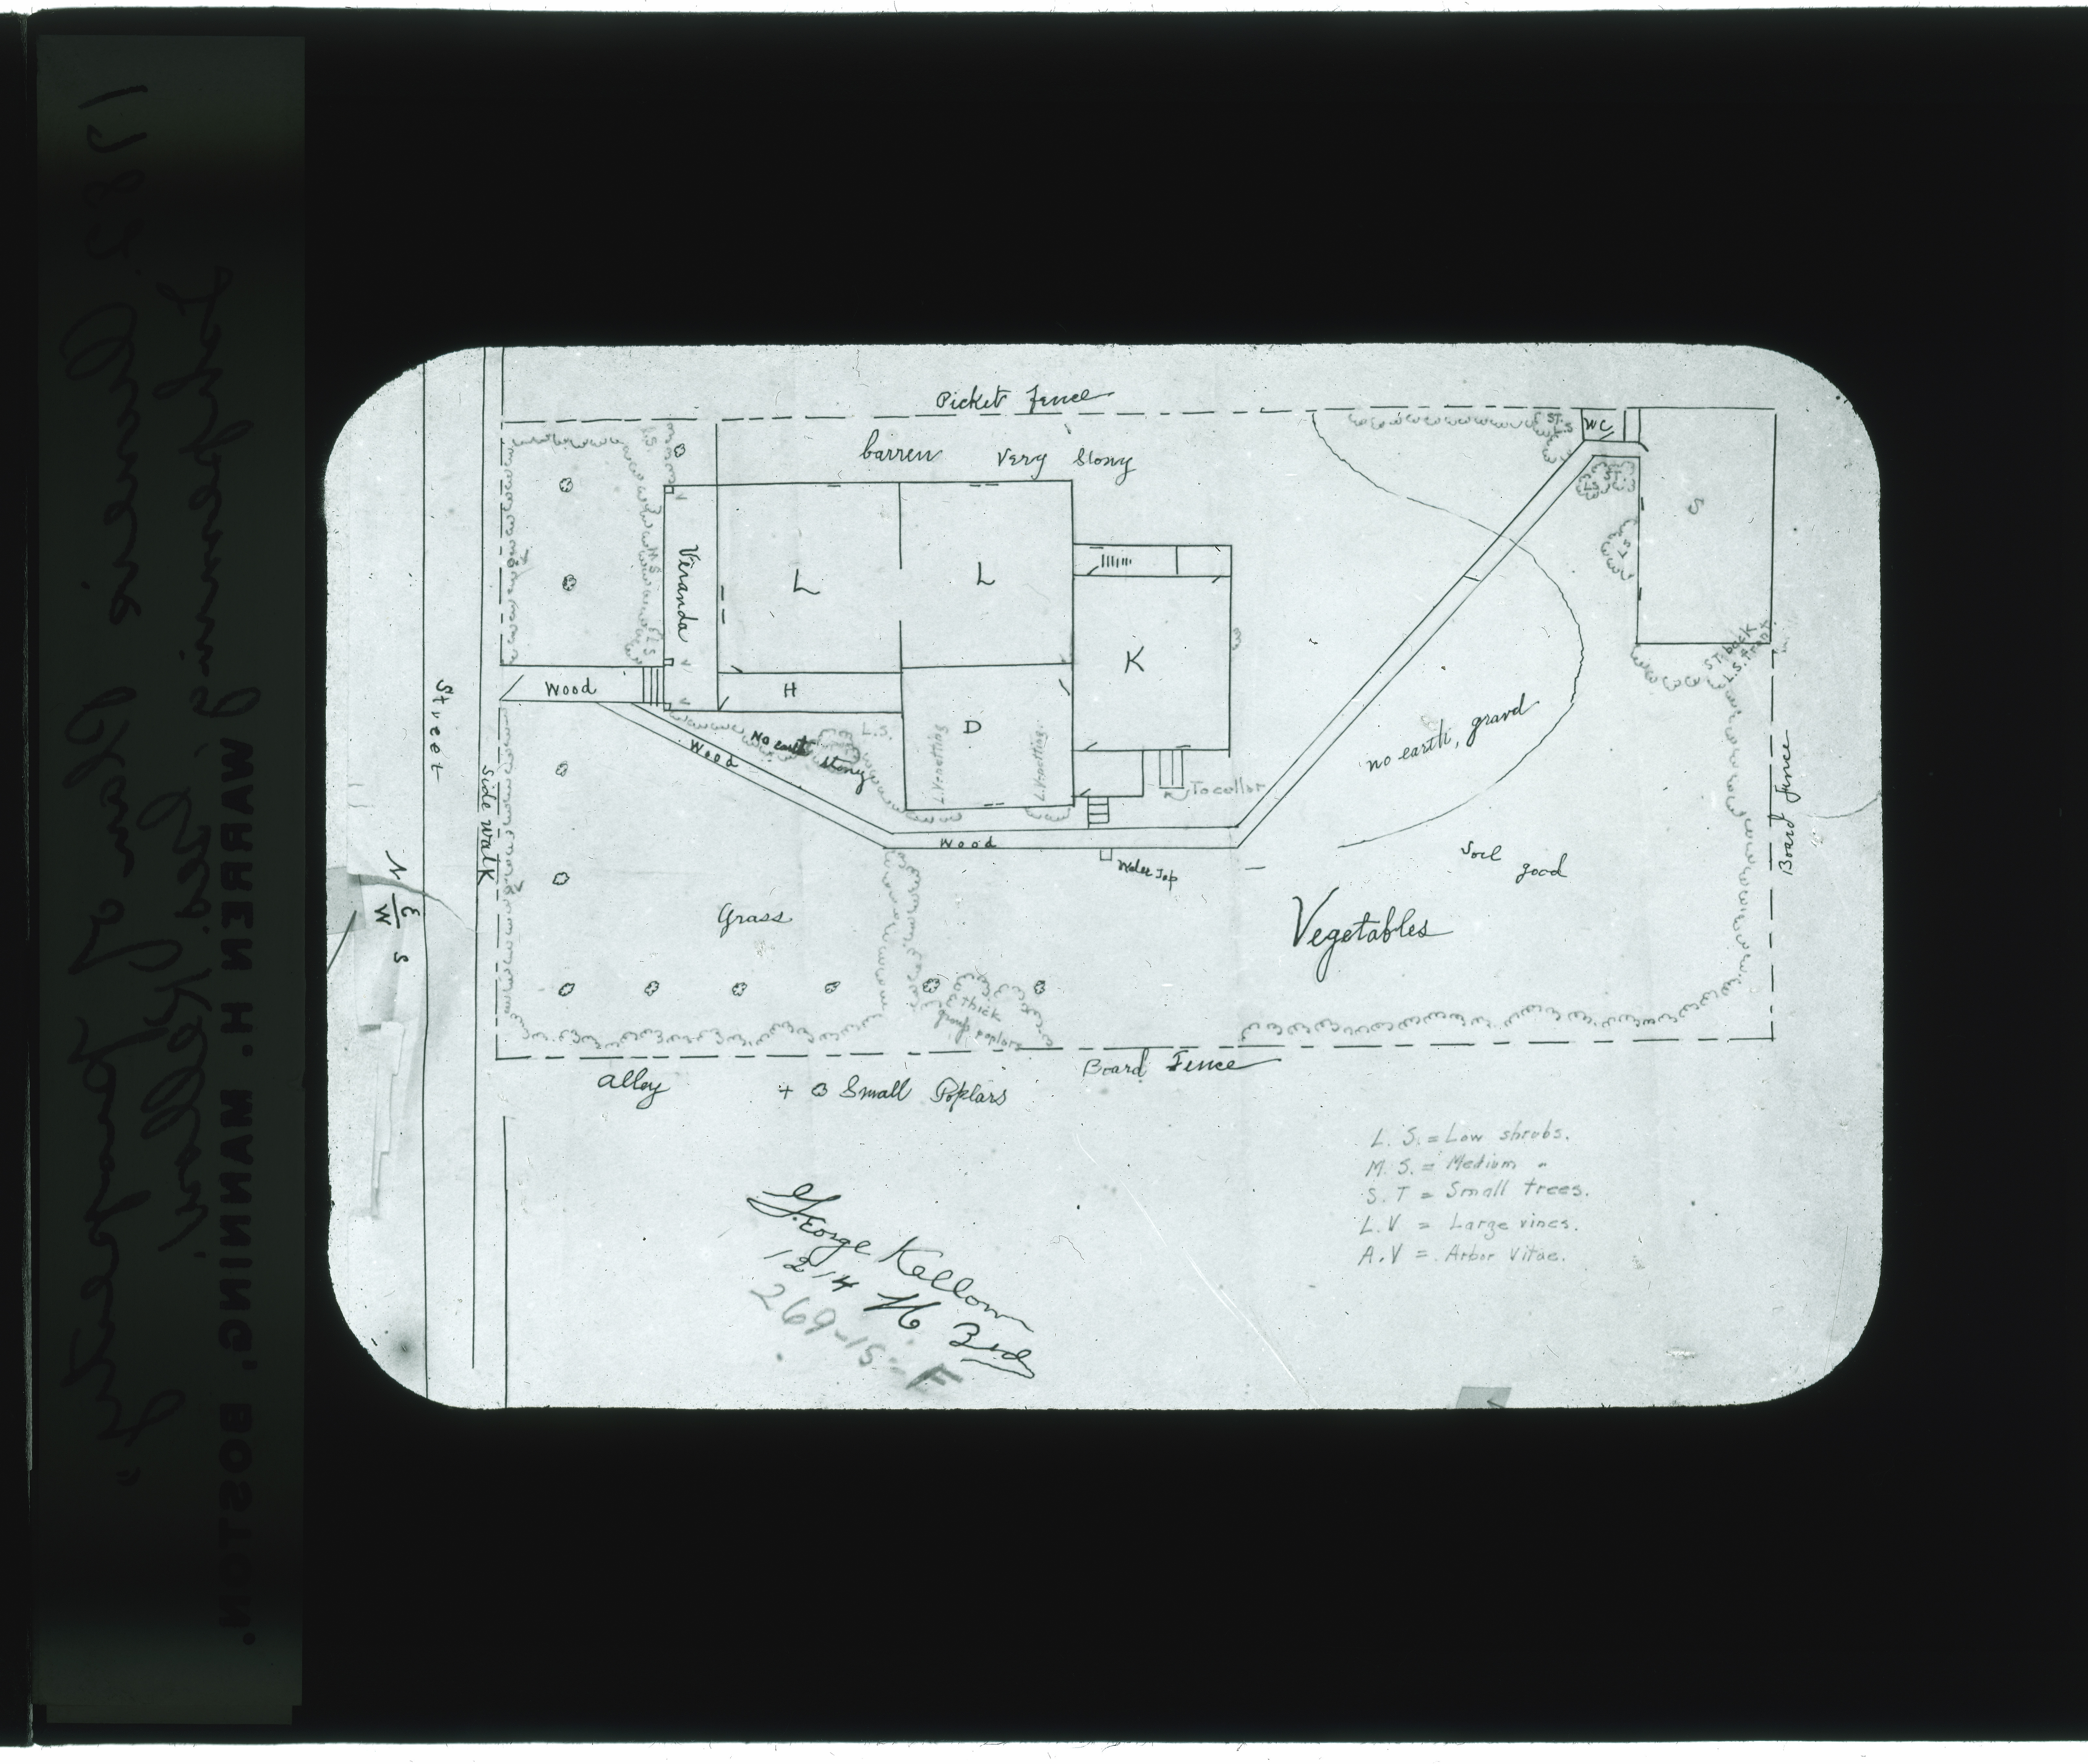 Picket Fence
barren Very Stony
ST.S
WC
L.S.
ST.
LS
S
LS
Veranda
M.S
L.S
L
L
K
H
D
Wood
Wood
No earth
stony
L.S.
L.V. netting
L.V. netting
To cellar
Wood
Water Tap
no earth, gravel
ST. back
L.S. front
Soil
good
Vegetables
Grass
thick
group poplars
Street
Side Walk
Board Fence
N
E
W
S
Alley
+ Small Poplars
Board Fence
L. S. = Low shrubs.
M. S. = Medium "
S. T = Small trees.
L. V = Large vines.
A. V = Arbor Vitae.
George Kellom
1214 N 3rd
269-15-F
WARREN H. MANNING, BOSTON.